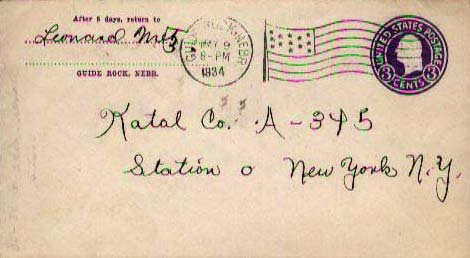 After 5 days, return to
Leonard
GUIDE ROCK, NEBR.
GUIDE ROCK, NEBR.
MAY 9
8-PM
1934
UNITED STATES POSTAGE
3 CENTS 3
Katal Co. A-345
Station O New York N.Y.